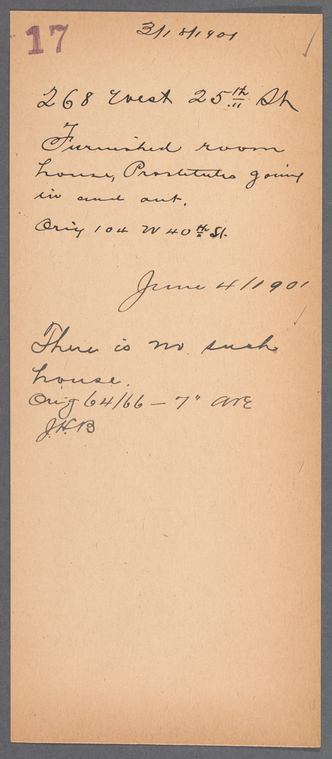 17
3/18/1901
268 West 25th St
Furnished room
house, Prostitutes going
in and out.
Orig 104 W 40th St.
June 4/1901
There is no such
house.
Orig 64/66 - 7" AVE
J.H.B